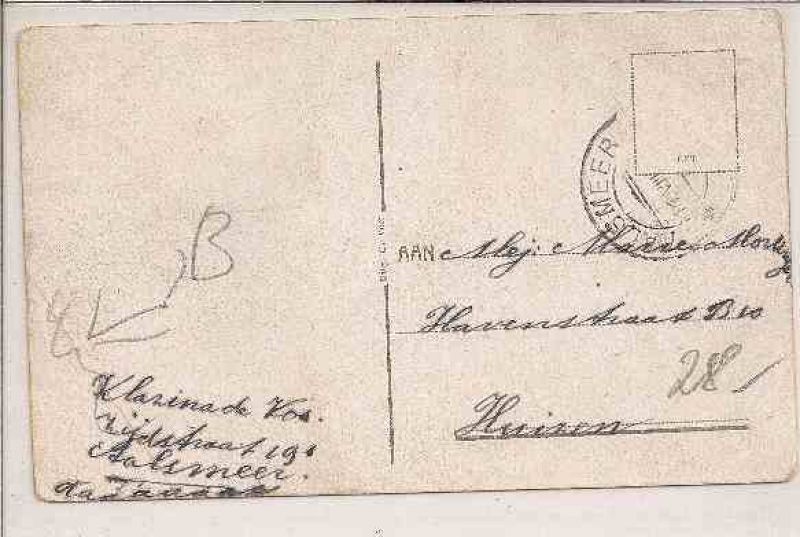 B
SMEER
AAN Mej: Marie
Havenstraat B 10
28,
Huizen
Klasina de Vos.
Zijdstraat 19
Aalsmeer.